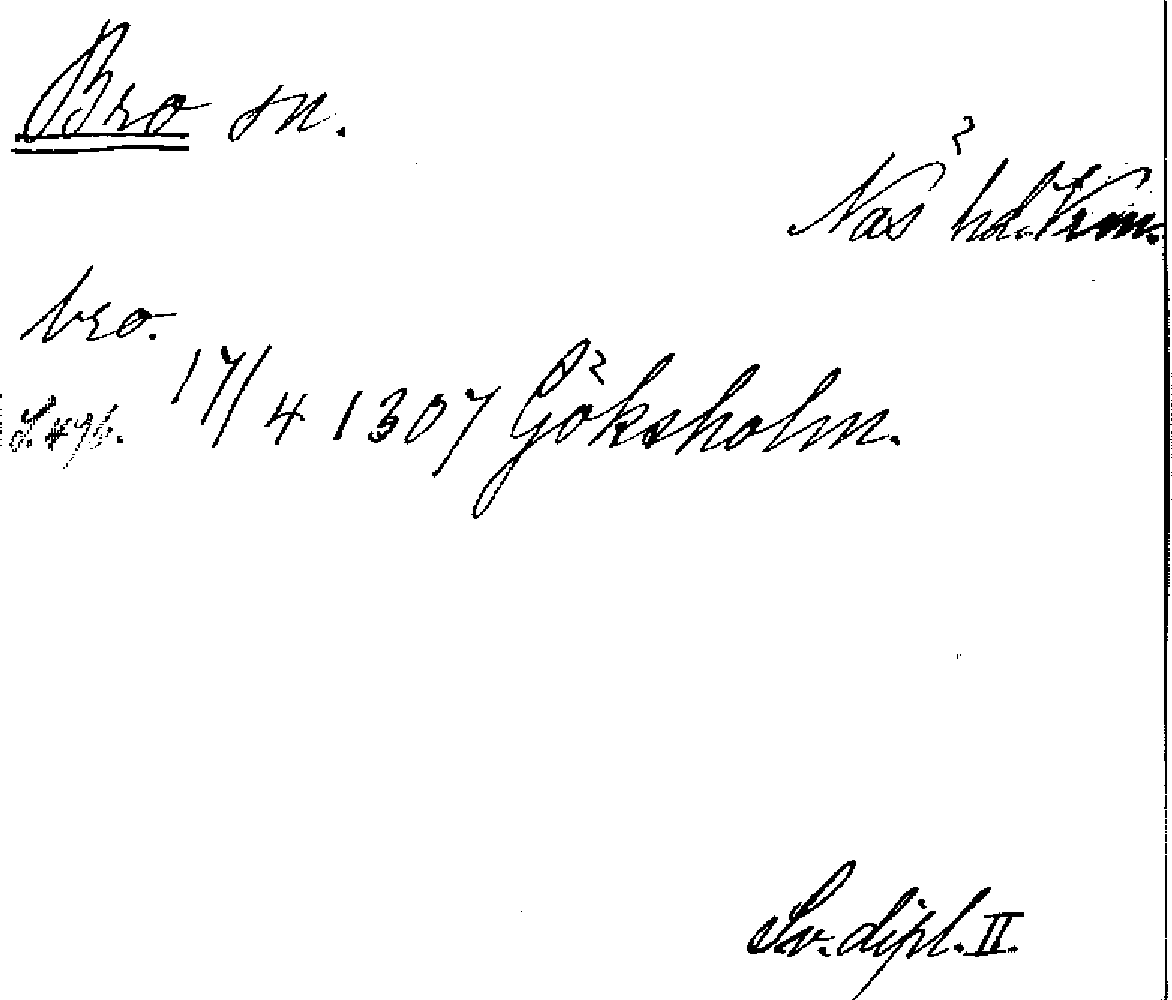 Bro sn.
Näs hd. Vrm.
bro.
S. 496. 17/4 1307 Göksholm.
Sv. dipl. II.